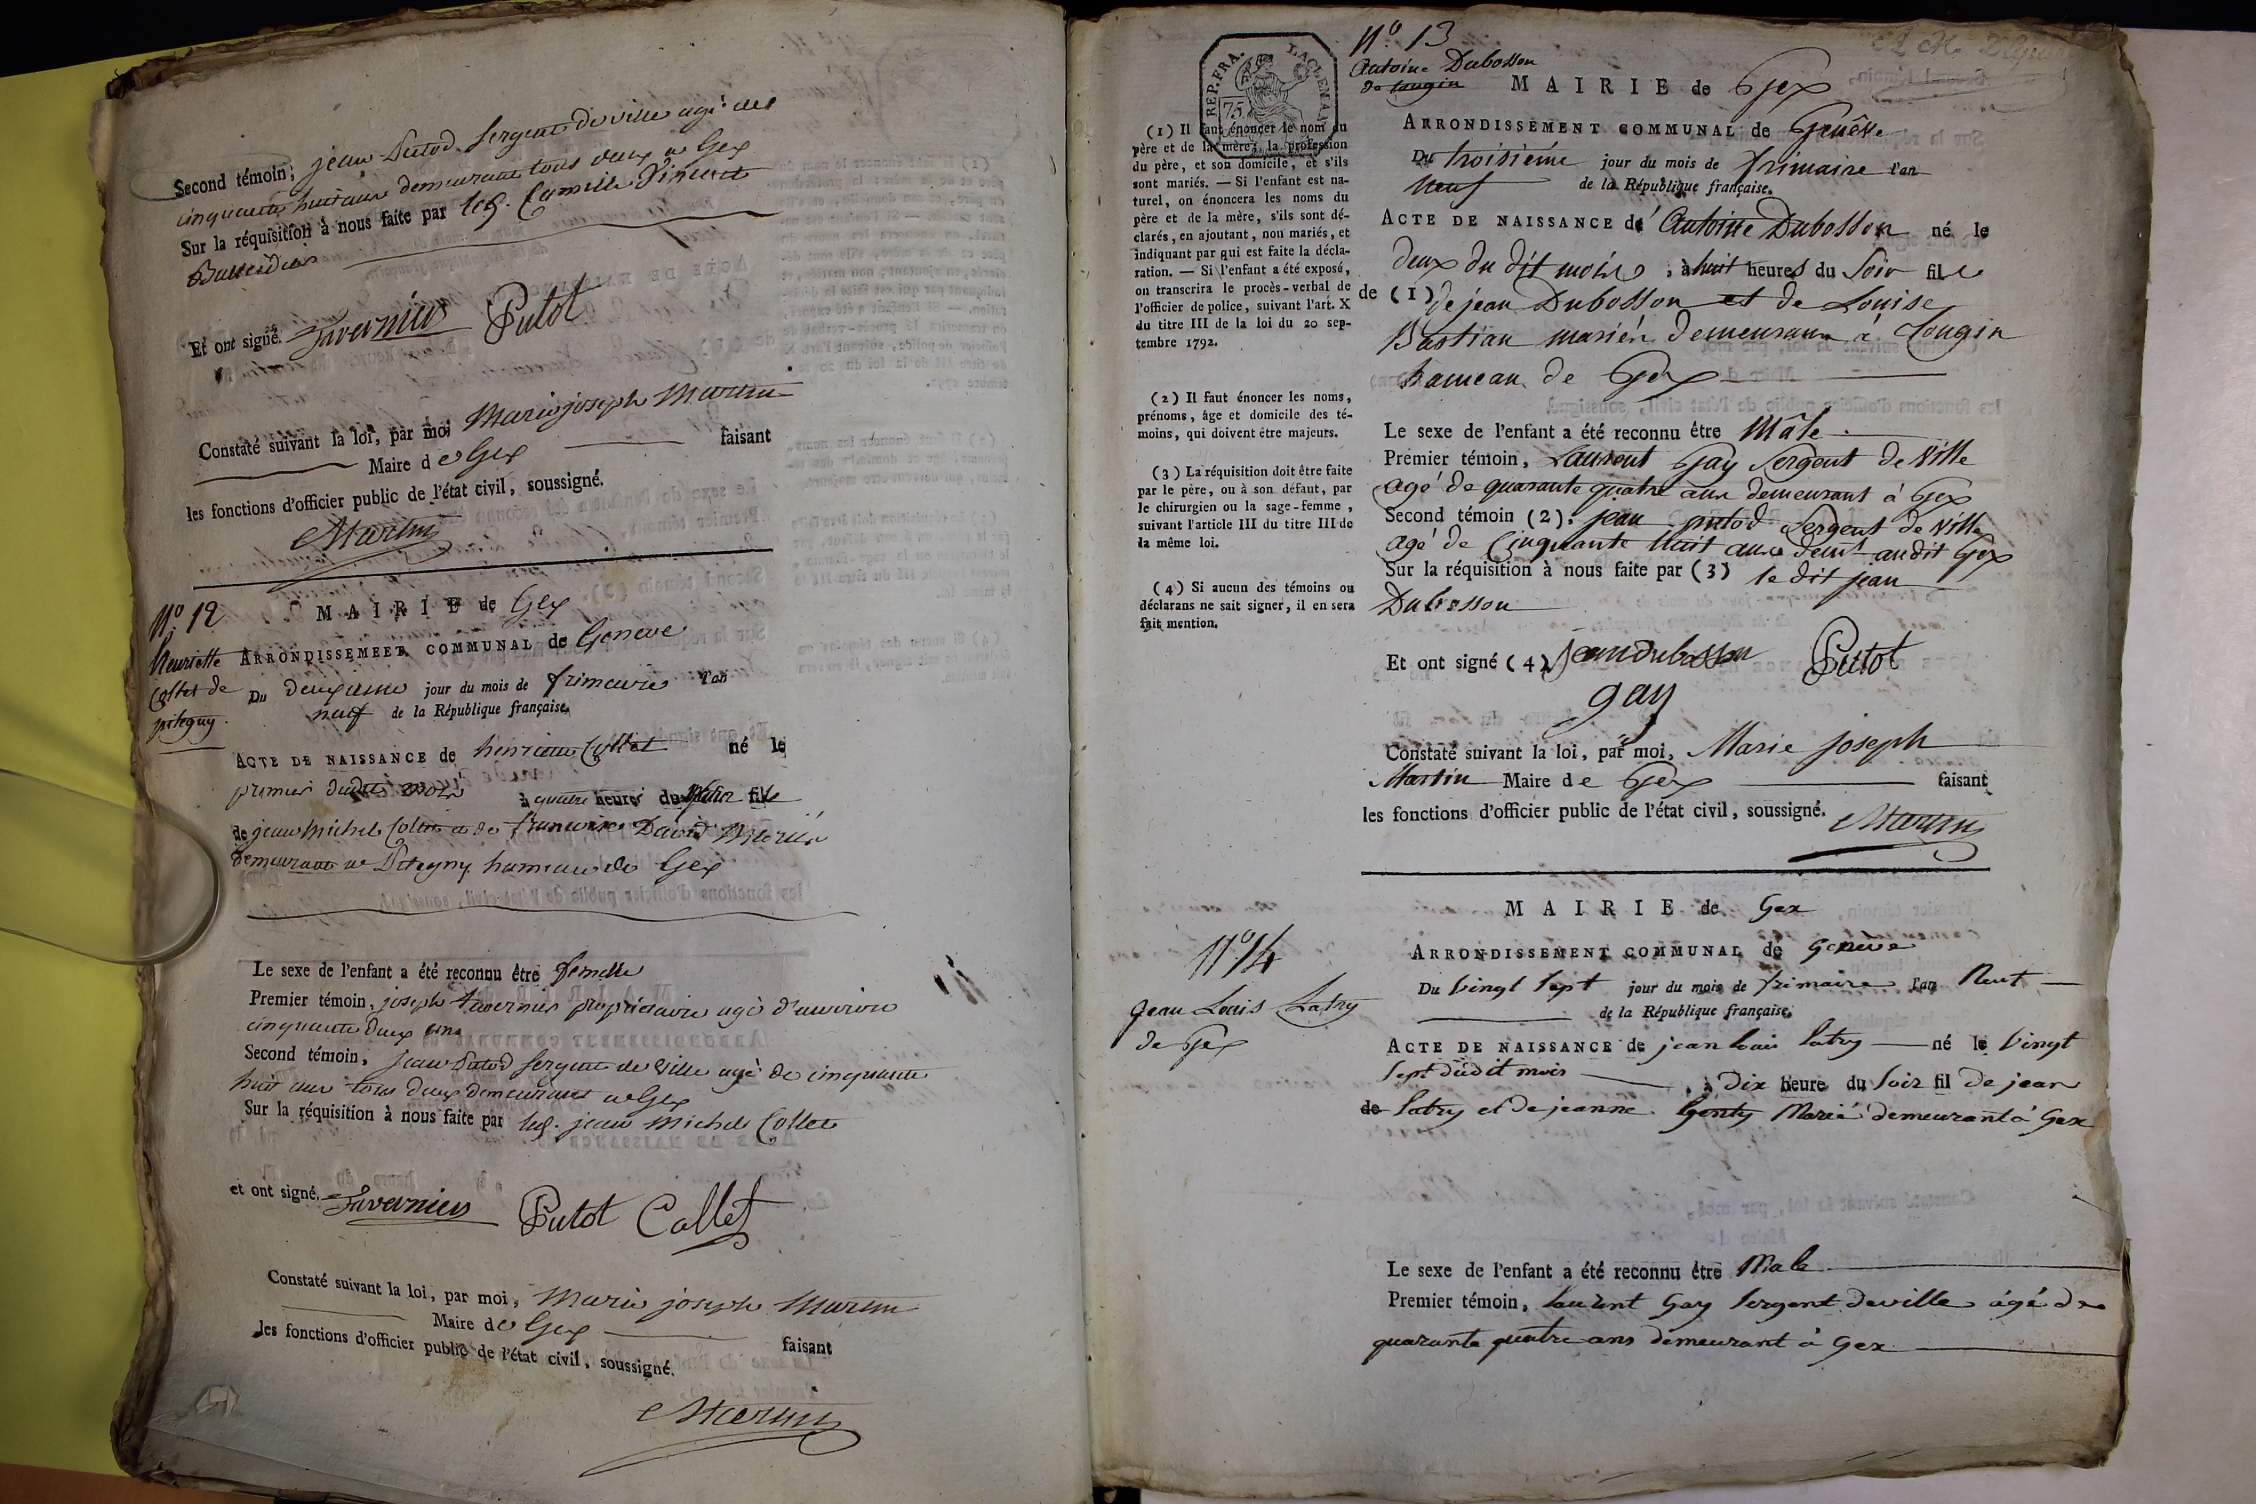 Second témoin, jean Putod Sergent de ville agé de
cinquante huit ans demeurant tous deux a Gex
Sur la réquisition à nous faite par le Cn. Camille Vincent
Et ont signé. Tavernier Putot
Constaté suivant la loi, par moi Marie joseph Martin
Maire de Gex faisant
les fonctions d'officier public de l'état civil, soussigné.
Martin
N.o 12
henriette
Collet de
pitegny.
MAIRIE de Gex
ARRONDISSEMEET COMMUNAL de Geneve
Du deuxieme jour du mois de frimaire l'an
neuf de la République française.
ACTE DE NAISSANCE de henriette Collet né le
premier dudit mois à quatre heures du fille
de jean michel Collet et de francoise David Mariés
demeurant a Pitegny hameau de Gex
Le sexe de l'enfant a été reconnu être femelle
Premier témoin, joseph tavernier propriétaire agé d'environ
cinquante deux ans
Second témoin, jean Putod Sergent de ville agé de cinquante
huit ans tous deux demeurant a Gex
Sur la réquisition à nous faite par jean michel Collet
et ont signé. Tavernier Putot Collet
Constaté suivant la loi, par moi, Marie joseph Martin
Maire de Gex faisant
les fonctions d'officier public de l'état civil, soussigné.
Martin
REP. FRA.
75.
N.o 13
Antoine Dubosson
de tougin
MAIRIE de Gex
ARRONDISSEMENT COMMUNAL de Genêve
Du troisiéme jour du mois de frimaire l'an
Neuf de la République française.
ACTE DE NAISSANCE de Antoine Dubosson né le
deux du dit mois, à huit heures du Soir fils
de (1) de jean Dubosson et de Louise
Bastian mariés demeurant à tougin
hameau de Gex
Le sexe de l'enfant a été reconnu être Mâle.
Premier témoin, Laurent Gay Sergent de Ville
agé de quarante quatre ans demeurant à Gex
Second témoin (2), jean putod Sergent de Ville
agé de Cinquante huit ans demt audit Gex
Sur la réquisition à nous faite par (3) le dit jean
Dubosson
Et ont signé (4) Jean dubosson Putot
gay
Constaté suivant la loi, par moi, Marie joseph
Martin Maire de Gex faisant
les fonctions d'officier public de l'état civil, soussigné.
Martin
(1) Il faut énoncer le nom du
père et de la mère, la profession
du père, et son domicile, et s'ils
sont mariés. — Si l'enfant est na-
turel, on énoncera les noms du
père et de la mère, s'ils sont dé-
clarés, en ajoutant, non mariés, et
indiquant par qui est faite la décla-
ration. — Si l'enfant a été exposé,
on transcrira le procès-verbal de
l'officier de police, suivant l'art. X
du titre III de la loi du 20 sep-
tembre 1792.
(2) Il faut énoncer les noms,
prénoms, âge et domicile des té-
moins, qui doivent être majeurs.
(3) La réquisition doit être faite
par le père, ou à son défaut, par
le chirurgien ou la sage-femme,
suivant l'article III du titre III de
la même loi.
(4) Si aucun des témoins ou
déclarans ne sait signer, il en sera
fait mention.
N.o 14
Jean Louis Latry
de Gex
MAIRIE de Gex
ARRONDISSEMENT COMMUNAL de Geneve
Du vingt Sept jour du mois de frimaire l'an Neuf
de la République française.
ACTE DE NAISSANCE de jean louis latry né le vingt
Sept dudit mois, à Dix heure du Soir fil de jean
de latry et de jeanne Genty Marié demeurant à Gex
Le sexe de l'enfant a été reconnu être Male
Premier témoin, laurent Gay Sergent deville âgé de
quarante quatre ans demeurant à Gex